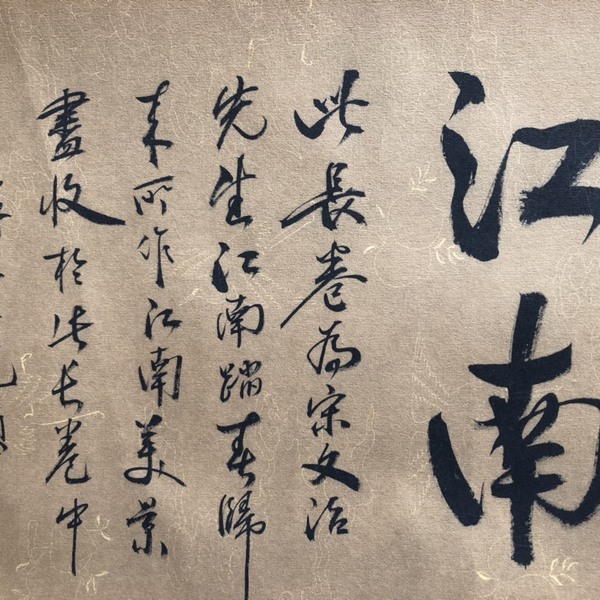 江南
此長卷為宋文治
先生江南踏春歸
来所作江南美景
盡收於此长卷中